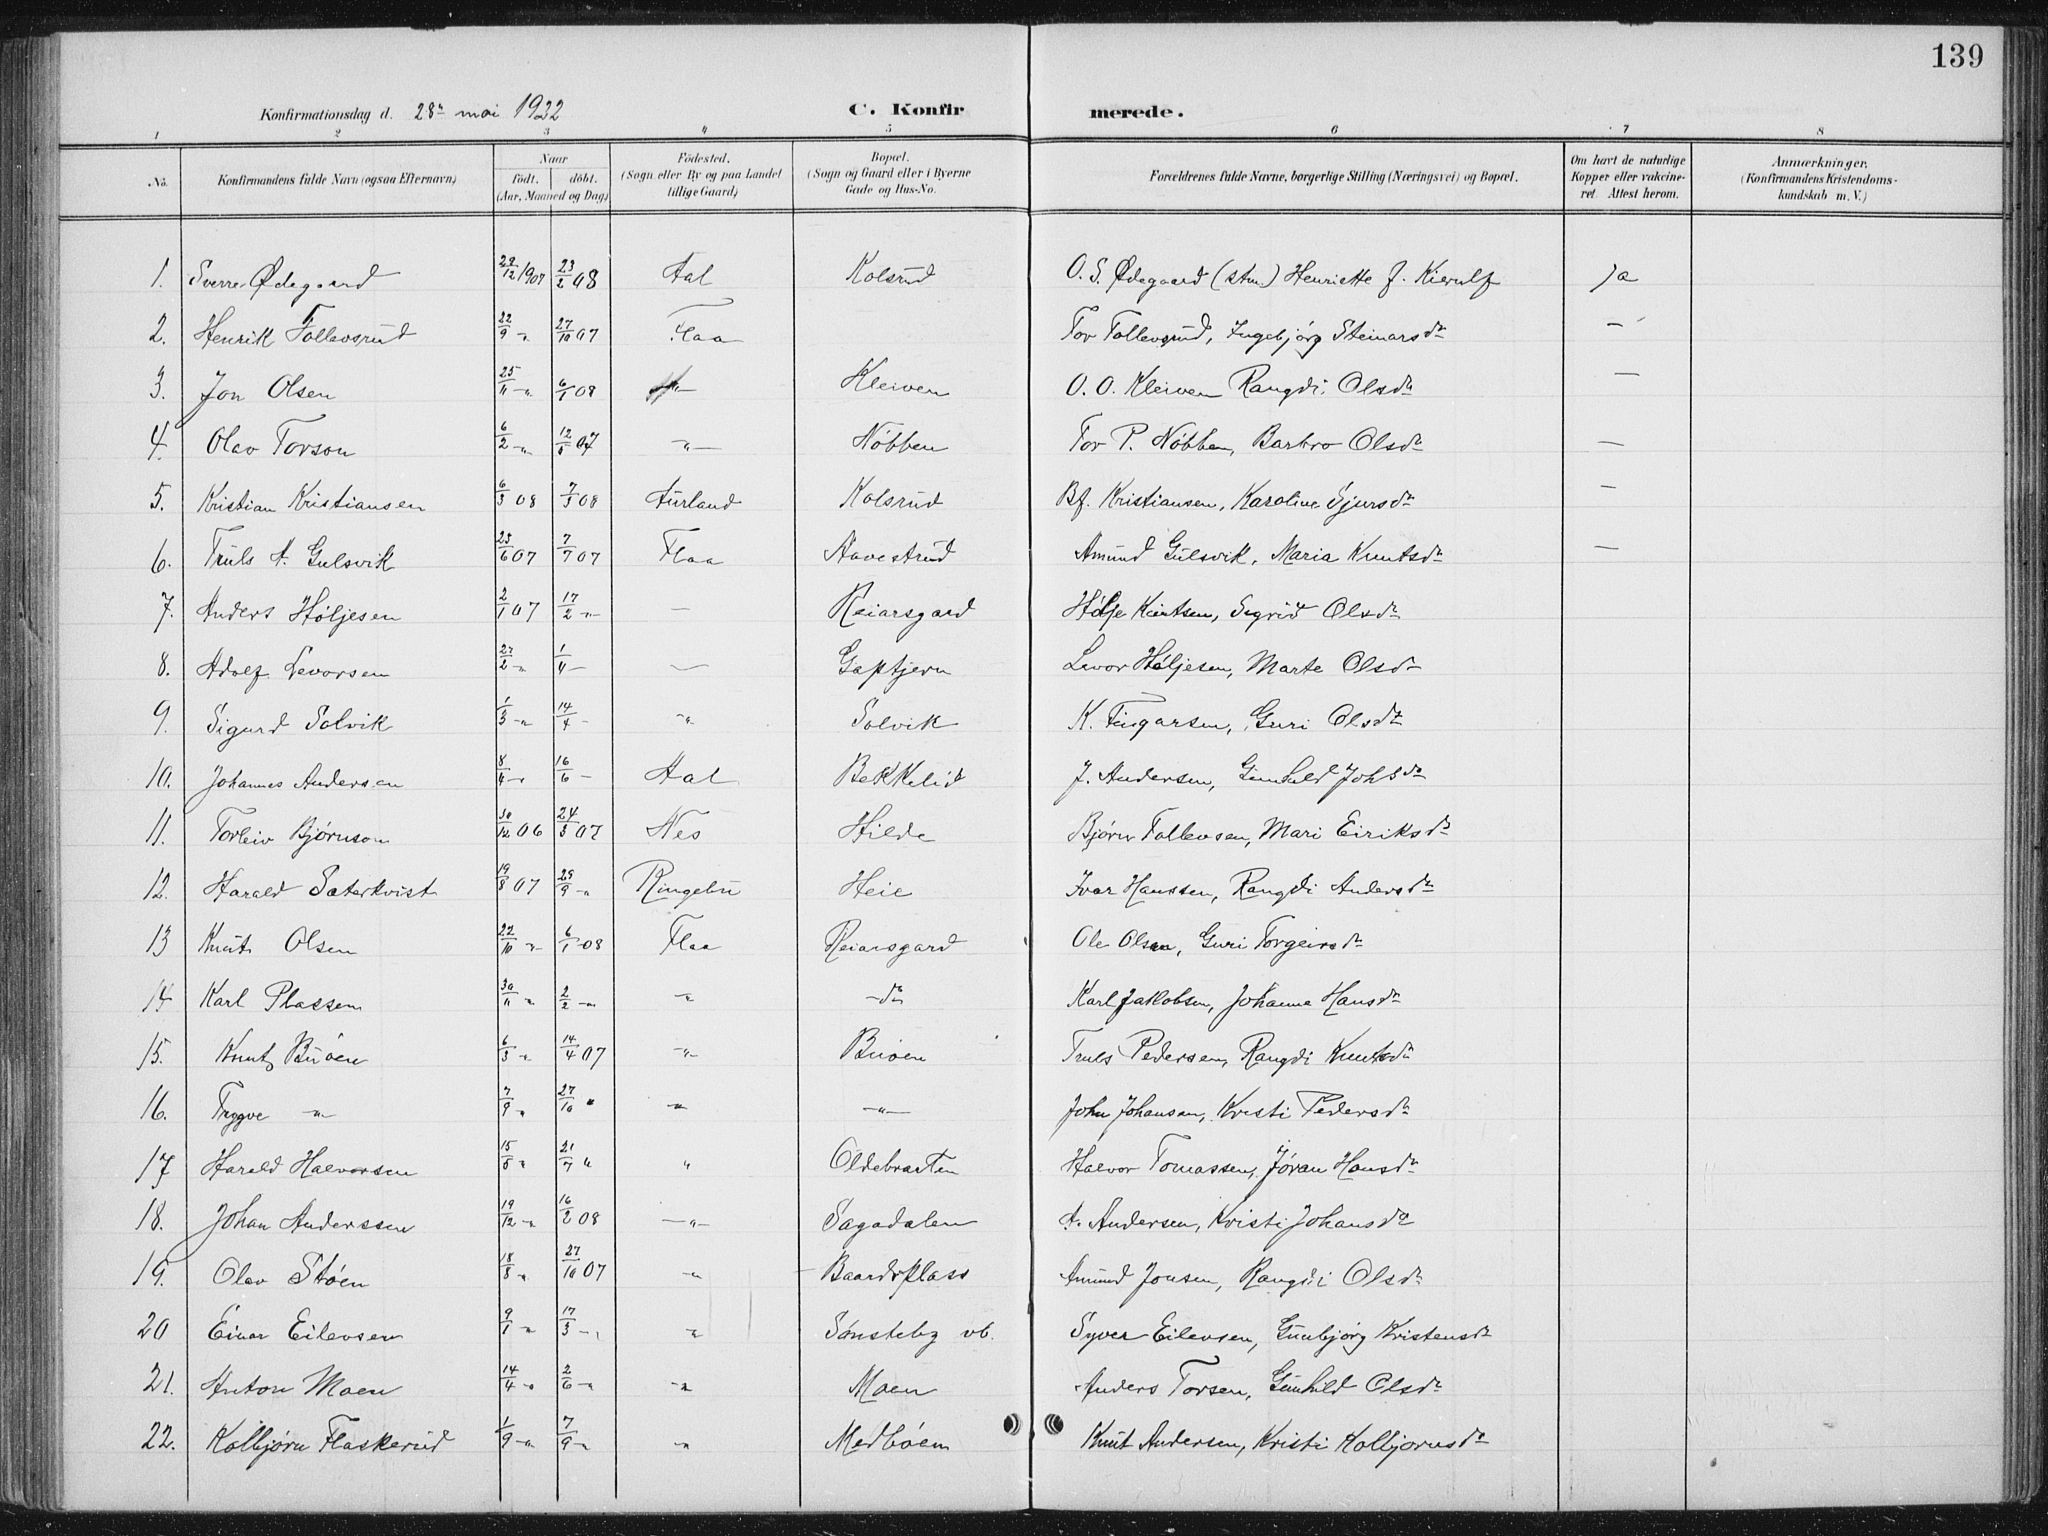 139
Konfirmationsdag d. 28de mai 1922 C. Konfirmerede.
1 2 3 4 5 6 7 8
No. Konfirmandens fulde Navn (ogsaa Efternavn) Naar født. døbt. (Aar, Maaned og Dag) Födested. (Sogn eller By og paa Landet tillige Gaard) Bopæl. (Sogn og Gaard eller i Byerne Gade og Hus-No. Forældrenes fulde Navne, borgerlige Stilling (Næringsvei) og Bopæl. Om havt de naturlige Kopper eller vakcineret. Attest herom. Anmærkninger, (Konfirmandens Kristendomskundskab m. V.)
1. Sverre Ødegaard 29/12 1907 23/2 08 Aal Kolsrud O. S. Ødegaard (stm.) Henriette J. Kierulf ja
2. Henrik Tollevsrud 22/9 -"- 27/10 07 Flaa Tov Tollevsrud, Ingebjørg Steinarsdr —
3. Jon Olsen 25/11 -"- 6/1 08 -"- Kleiven O. O. Kleiven Rangdi Olsdr —
4. Olav Torson 6/2 -"- 12/5 07 -"- Nøbben Tor P. Nøbben, Barbro Olsdr —
5. Kristian Kristiansen 6/3 08 7/5 08 Aurland Kolsrud Bf. Kristiansen, Karoline Sjursdr —
6. Truls A. Gulsvik 23/6 07 7/7 07 Flaa Aavestrud Amund Gulsvik, Maria Knutsdr —
7. Anders Høljesen 2/1 07 17/2 -"- — Reiarsgard Hølje Knutsen, Sigrid Olsdr
8. Adolf Levorsen 27/2 -"- 1/4 — — Gaptjern Levor Høljesen, Marte Olsdr
9. Sigurd Solvik 1/3 -"- 14/4 - -"- Solvik K. Fingarsen, Guri Olsdr
10. Johannes Andersen 8/4 -"- 16/6 - Aal Bekkelid J. Andersen, Gunhild Johsdr
11. Torleiv Bjørnson 30/12 06 24/3 07 Nes Hilde Bjørn Tollevsen, Mari Eiriksdr
12. Harald Saterkvist 19/8 07 29/9 -"- Ringebu Heie Ivar Hanssen, Rangdi Andersdr
13 Knut Olsen 22/10 -"- 6/1 08 Flaa Reiarsgard Ole Olsen, Guri Torgeirsdr
14 Karl Plassen 30/11 -"- 2/2 -"- -"- -do- Karl Jakobsen, Johanne Hansdr
15. Knut Bruen 6/3 -"- 14/4 07 -"- Bruen Truls Pedersen, Rangdi Knutsdr
16. Trygve -"- 7/9 " 27/10 " -"- -"- John Johansen, Kristi Pedersdr
17 Harald Halvorsen 15/5 " 21/7 " " Oldebraaten Halvor Tomassen, Jøran Hansdr
18. Johan Anderssen 19/12 -"- 16/2 08 -"- Sagadalen A. Andersen, Kristi Johansdr
19. Olav Støen 18/8 " 27/10 07 -"- Baardsplass Amund Jonsen, Rangdi Olsdr
20 Einar Eilevsen 9/1 -"- 17/3 -"- -"- Sønsteby vb. Syver Eilevsen, Gunbjørg Kristensdr
21. Anton Moen 14/4 -"- 2/6 -"- -"- Moen Anders Torsen, Gunhild Olsdr
22. Kolbjørn Flaskerud 1/9 -"- 7/9 -"- -"- Medbøen Knut Andersen, Kristi Kolbjørnsdr